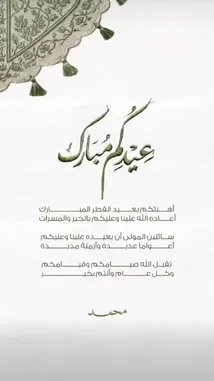 عيدكم مبارك
أهنئكم بعيد الفطر المبارك
أعاده الله علينا وعليكم بالخير والمسرات
سائلين المولى أن يعيده علينا وعليكم
أعواما عديدة وأزمنة مديدة
تقبل الله صيامكم وقيامكم
وكل عام وأنتم بخير
محمد